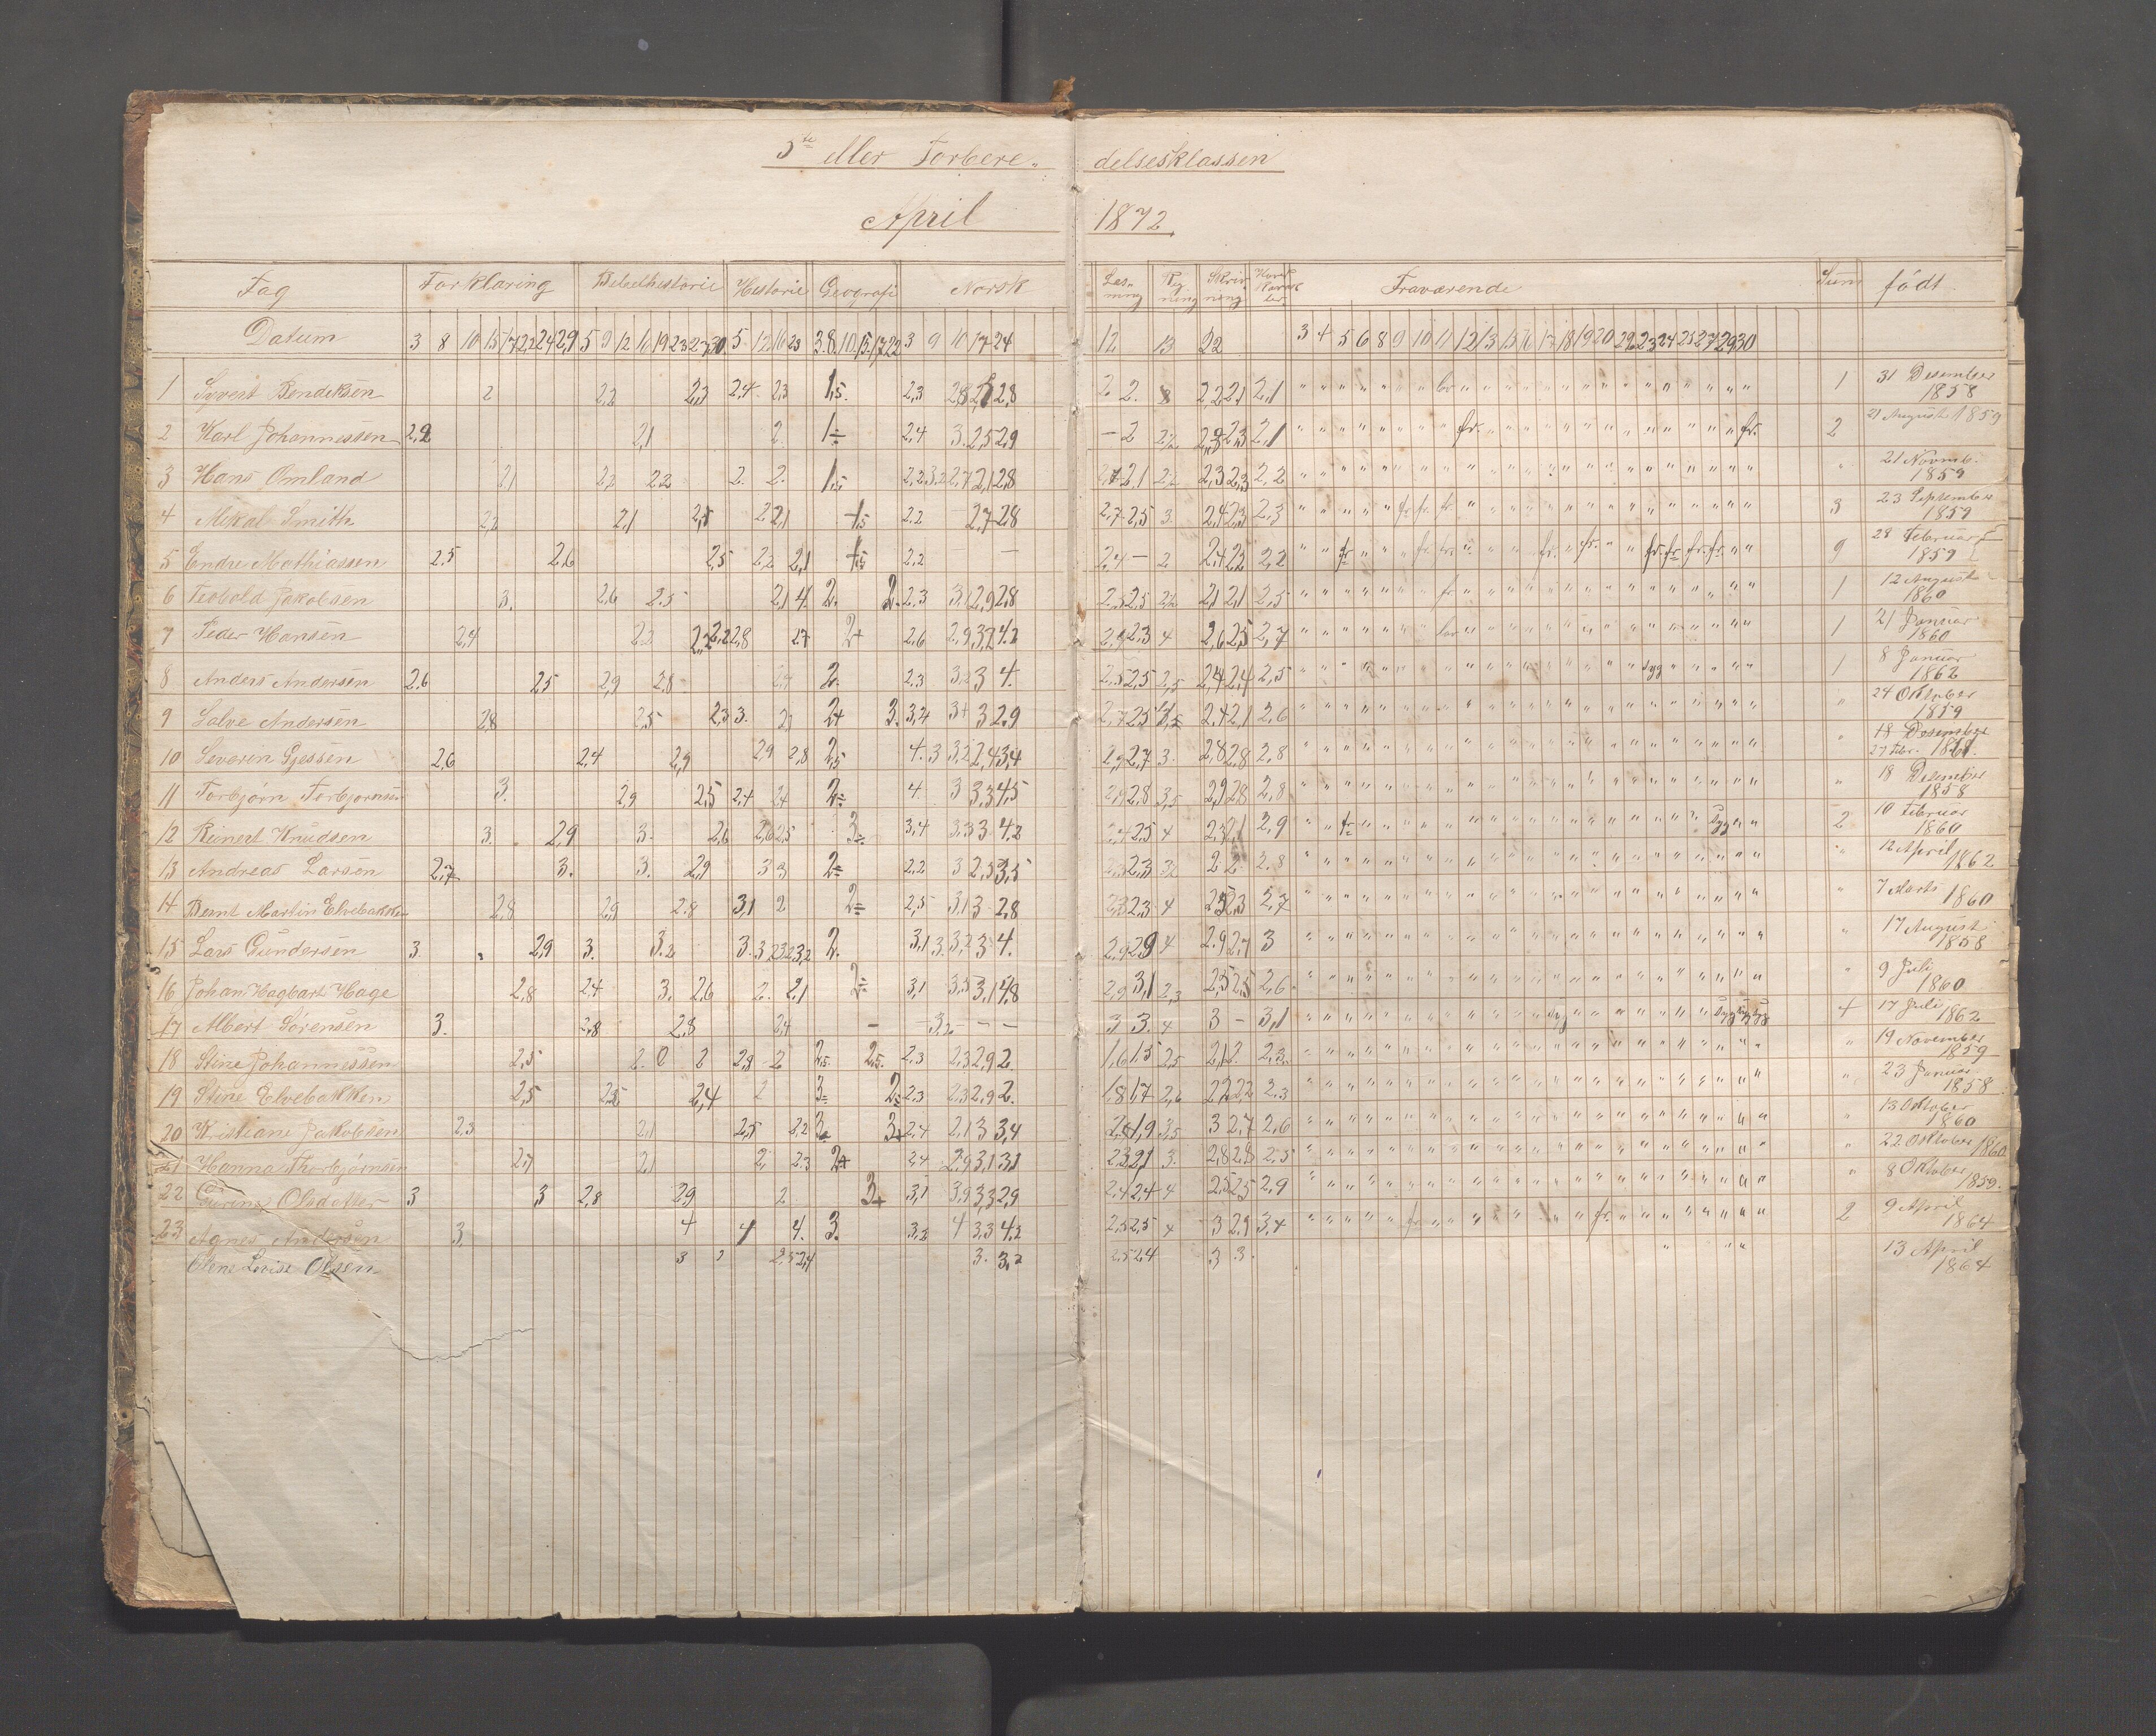 3te eller Forbere- delsesklassen
April 1872.
Fag Forklaring Bibelhistorie Historie Geografi Norsk Læs-ning Reg-ning Skriv-ning Fraværende Sum født
Datum 3 8 10 15 17 22 24 29 5 9 12 16 19 23 27 30 5 12 16 23 3. 8. 10. 15. 17 22 3 9 10 17 24 12 13 22 3 4 5 6 8 9 10 11 12 13 15 16 17 18 19 20 22 23 24 25 27 29 30
1 Syvert Bendiksen 2 2,2 2,3 2,4 2,3 1,5. 2,3 2,1 1 31 Desember 1858
2 Karl Johannessen 2,2 2,1 2. 1÷ 2,4 3. 2,5 2,9 - 2 2,1 fr. fr. 2 21 August 1859
3 Hans Omland 2,1 2,2 2,2 2. 2. 1,5 2,1 2,8 2,1 2,3 2,3 2,2 " 21 Novemb. 1859
4 Mikal Smith 2,2 2,1 2,2 2,1 2,2 2,7 2,8 2,7 2,5 3. 2,4 2,3 2,3 fr. fr. fr. 3 23 September 1859
5 Endre Mathiassen 2,5 2,6 2,5 2,2 2,1 2,2 - - 2,4 - 2 2,4 2,2 2,2 fr fr. fr. fr. fr. fr. fr. fr. fr. 9 28 Februar 1859
6 Teobold Jakobsen 3. 2,6 2,5 2,1 4. 2. 2. 2,3 3,1 2,9 2,8 2,5 2,5 2,1 2,1 2,5 fr 1 12 August 1860
7 Peder Hansen 2,4 2,2 2,2 2,2 2,8 2,7 2+ 2,6 2,9 3,2 4,2 2,9 2,3 4 2,6 2,5 2,7 1 21 Januar 1860
8 Anders Andersen 2,6 2,5 2,9 2,8 2,7 2. 2,3 3,2 3 4. 2,5 2,5 2,5 2,4 2,4 2,5 syg 1 8 Januar 1862
9 Salve Andersen 2,8 2,5 2,3 3. 2,7 2+ 3. 3,4 3+ 3 2,9 2,7 2,5 2,4 2,1 2,6 " 24 Oktober 1859
10 Severin Gjessen 2,6 2,4 2,9 2,9 2,8 2,5 4. 3 3,2 2,4 3,4 2,9 2,7 3. 2,8 2,8 2,8 " 18 Desember 27 Febr. 1861.
11 Torbjørn Torbjørnsen 3. 2,9 2,5 2,4 2,4 2÷ 4. 3 3,3 4,5 2,9 2,8 3,5 2,9 2,8 2,8 " 18 Desember 1858
12 Reinert Knudsen 3. 2,9 3. 2,6 2,6 2,5 3÷ 3,4 3,3 3 4,2 2,4 2,5 4 2,3 2,1 2,9 fr Syg 2 10 Februar 1860
13 Andreas Larsen 2,7 3. 3. 2,9 3 3 2÷ 2,2 3 2,5 3,5 2,3 2,3 3,2 2 2 2,8 " 12 April 1862
14 Bernt Martin Elvebakken 2,8 2,9 2,8 3,1 2 2÷ 2,5 3,1 3 2,8 2,3 2,3 4 2,5 2,3 2,7 " 7 Marts 1860
15 Lars Gundersen 3. 2,9 3. 3,2 3. 3 2. 3,1 3. 3,2 3 4. 2,9 2,9 4 2,9 2,7 3 " 17 August 1858
16 Johan Hagbart Hage 2,8 2,4 3. 2,6 2. 2,1 2÷ 3,1 3,5 3,1 4,8 2,9 3,1 2,3 2,5 2,5 2,6. " 9 Juli 1860
17 Albert Sørensen 3. 2,8 2,8 2,4 - - 3,2 - - 3 3. 4 3 - 3,1 syg Syg Syg Syg 4 17 Juli 1862
18 Stine Johannessen 2,5 2. 0 2 2,8 2 2,5. 2,5. 2,3 2,3 2,9 2. 1,6 1,5 2,5 2,1 2. 2,3. " 19 November 1859
19 Stine Elvebakken 2,5 2,5 2,4 2 3÷ 2÷ 2,3 2,3 2,9 2. 1,8 1,7 2,6 2,2 2,2 2,3 " 23 Januar 1858
20 Kristiane Jakobsen 2,3 2,1 2,5 2,2 2,4 2,1 3 3,4 1,9 3,5 3 2,7 2,6 " 13 Oktober 1860
21 Hanna Thorbjørnsen 2,7 2,1 2, 2,3 2+ 2,4 2,9 3,1 3,1 2,3 2,1 3. 2,8 2,8 2,5 " 22 Oktober 1860
22 Gurine Olsdatter 3 3 2,8 2,9 2. 3+ 3,1 3,9 3,3 2,9 2,4 2,4 4 2,5 2,5 2,9 " 8 Oktober 1859.
23 Agnes Andersen 3, 4 4 4. 3. 3,2 4 3,3 4,2 2,5 2,5 4 3 2,9 3,4 fr fr. 2 9 April 1864
Olene Lovise Olsen 3 2 2,5 2,4 3. 3,2 2,5 2,4 3 3. 13 April 1864